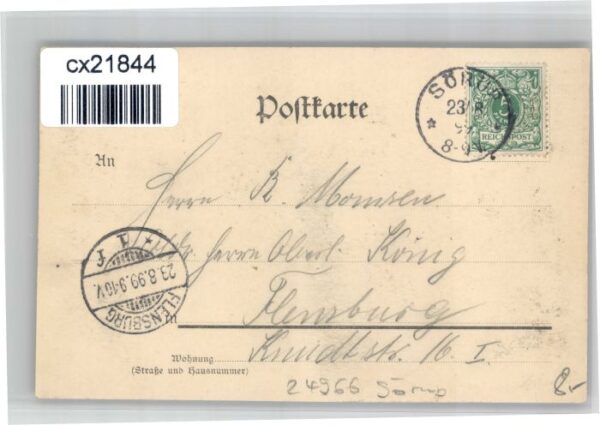 cx21844
Postkarte
SÖRUP
23/8
99
8-9V.
REICHSPOST
An
Herrn K. Momsen
Adr. Herrn Oberl. König
Flensburg
23.8.99.9-10V.
FLENSBURG
in
Wohnung
(Straße und Hausnummer)
16 I.
24966 Sörup
8-